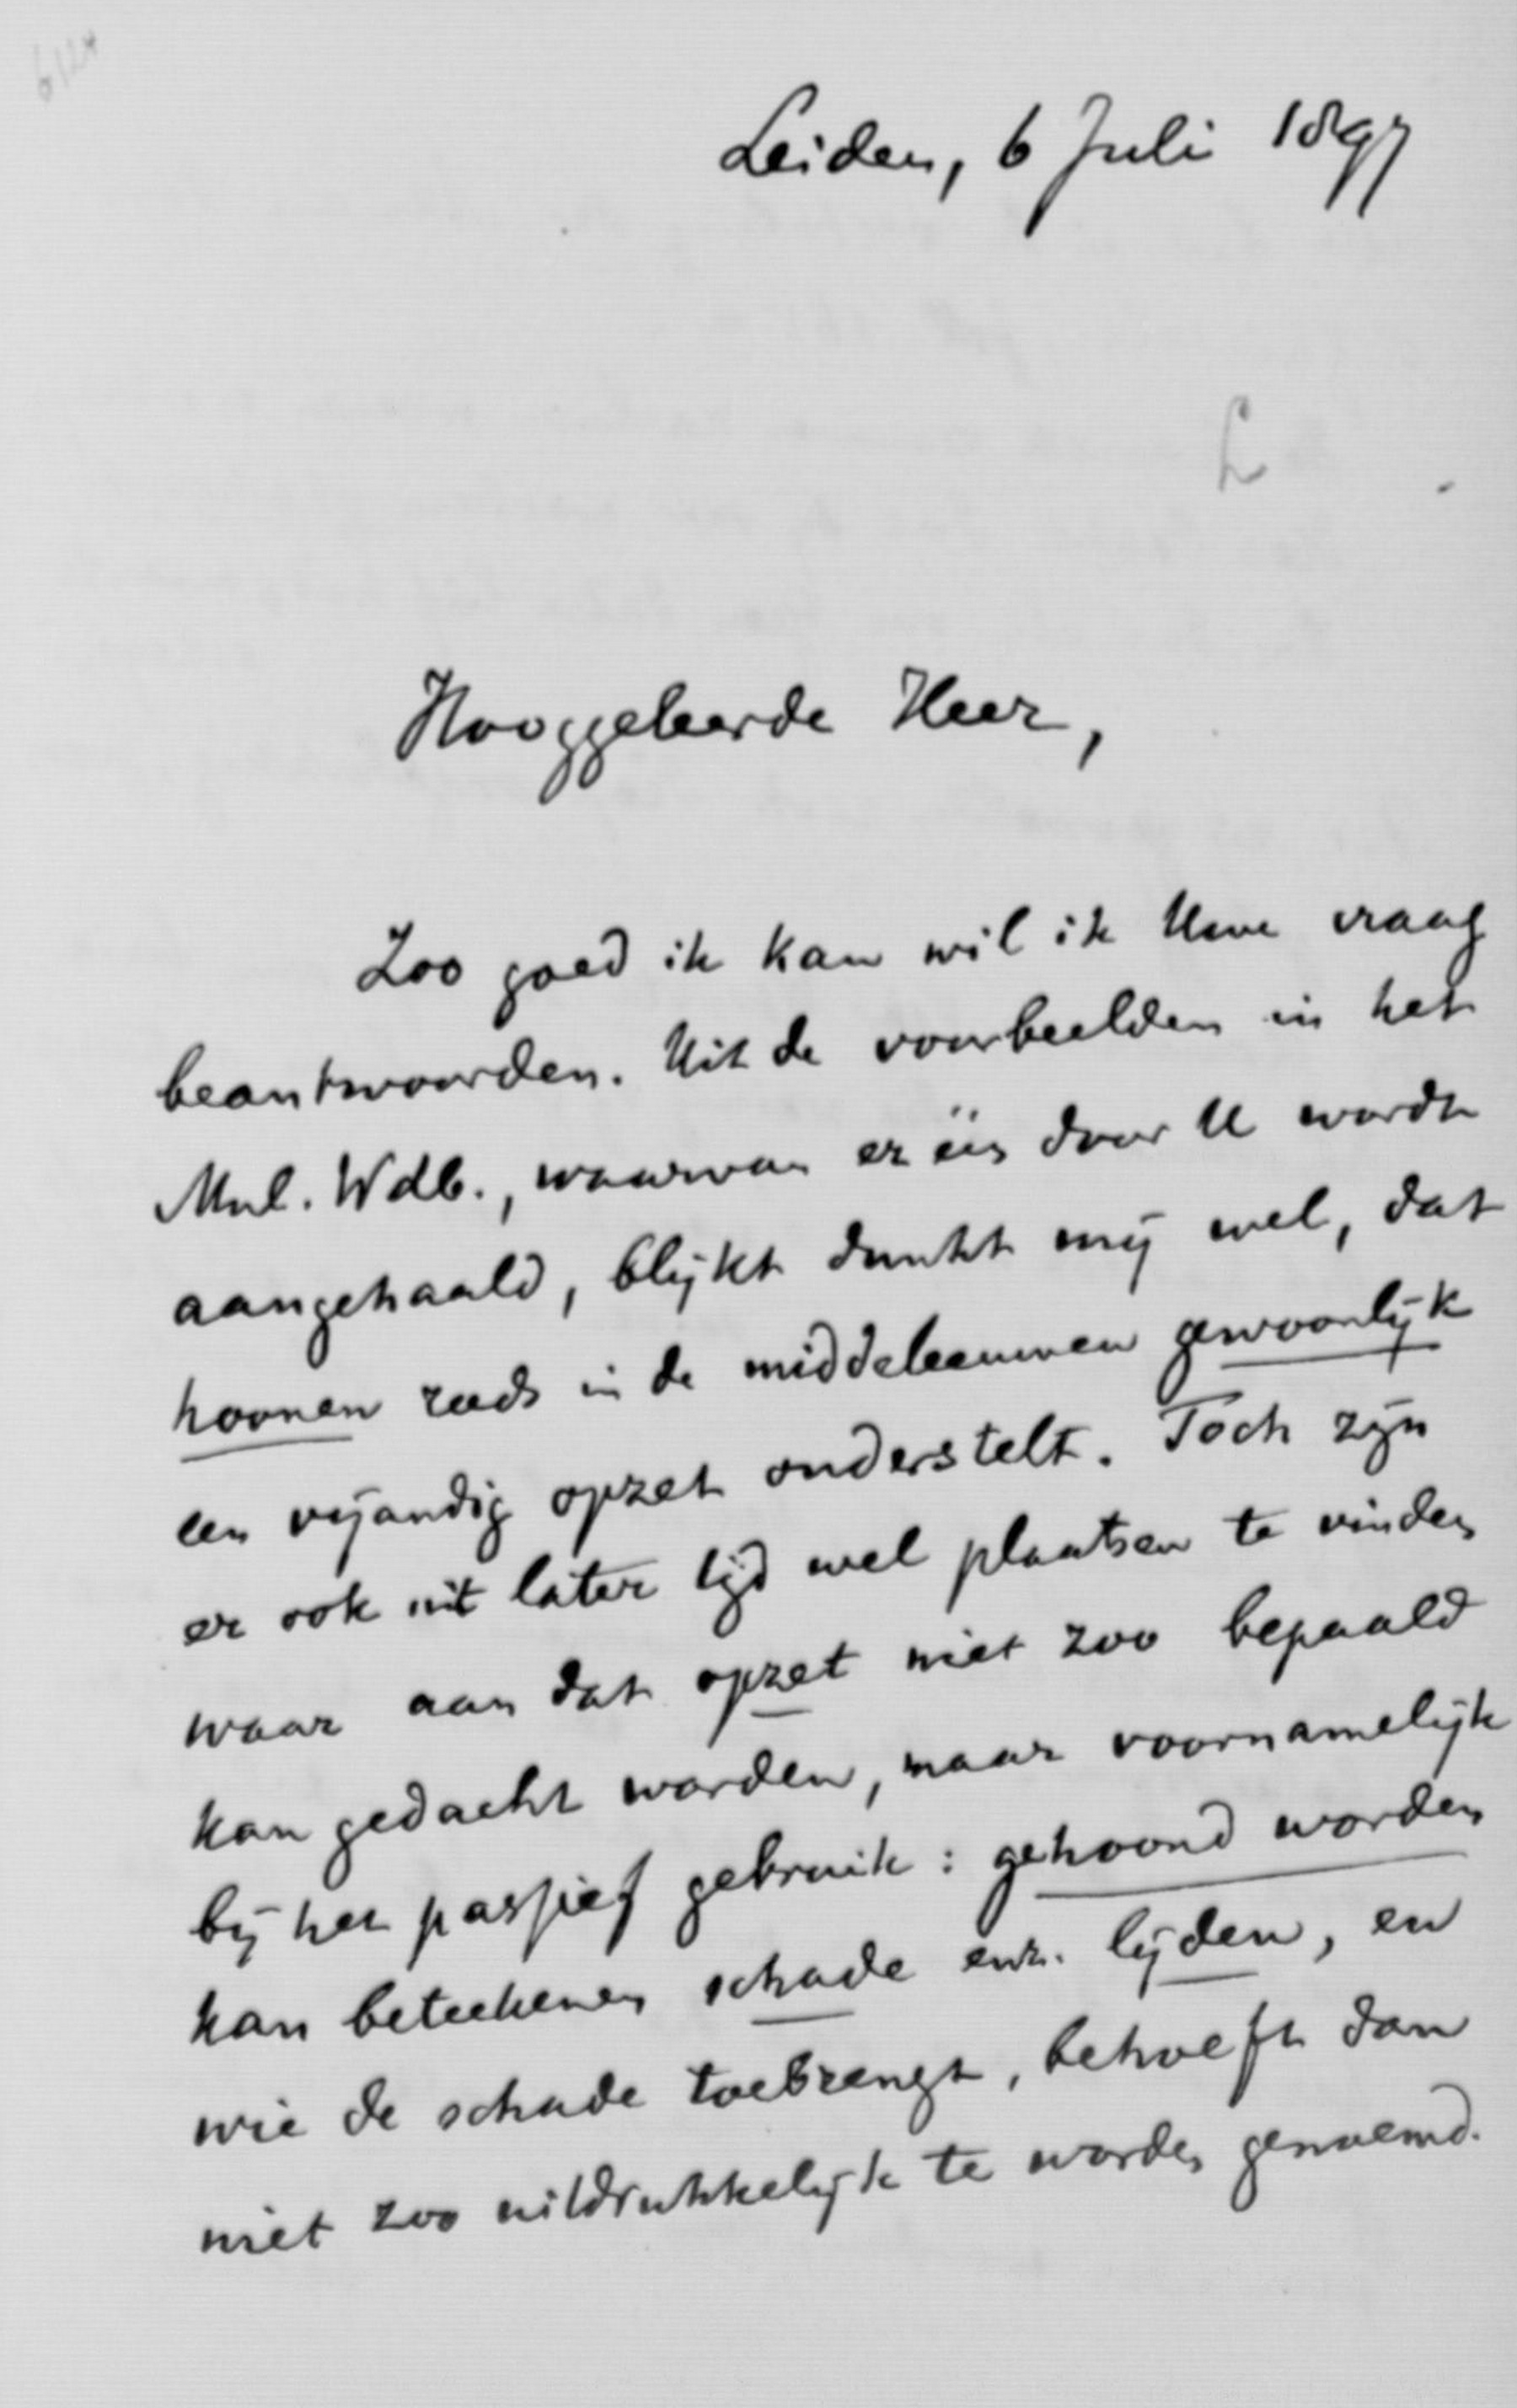 6124
Leiden, 6 Juli 1897
L
Hooggeleerde Heer,
Zoo goed ik kan wil ik Uwe vraag
beantwoorden. Uit de voorbeelden in het
Mnl. Wdb., waarvan er één door U wordt
aangehaald, blijkt dunkt mij wel, dat
hoonen reeds in de middeleeuwen gewoonlijk
een vijandig opzet onderstelt. Toch zijn
er ook uit later tijd wel plaatsen te vinden
waar aan dat opzet niet zoo bepaald
kan gedacht worden, maar voornamelijk
bij het passief gebruik: gehoond worden
kan beteekenen schade enz. lijden, en
wie de schade toebrengt, behoeft dan
niet zoo uitdrukkelijk te worden genoemd.